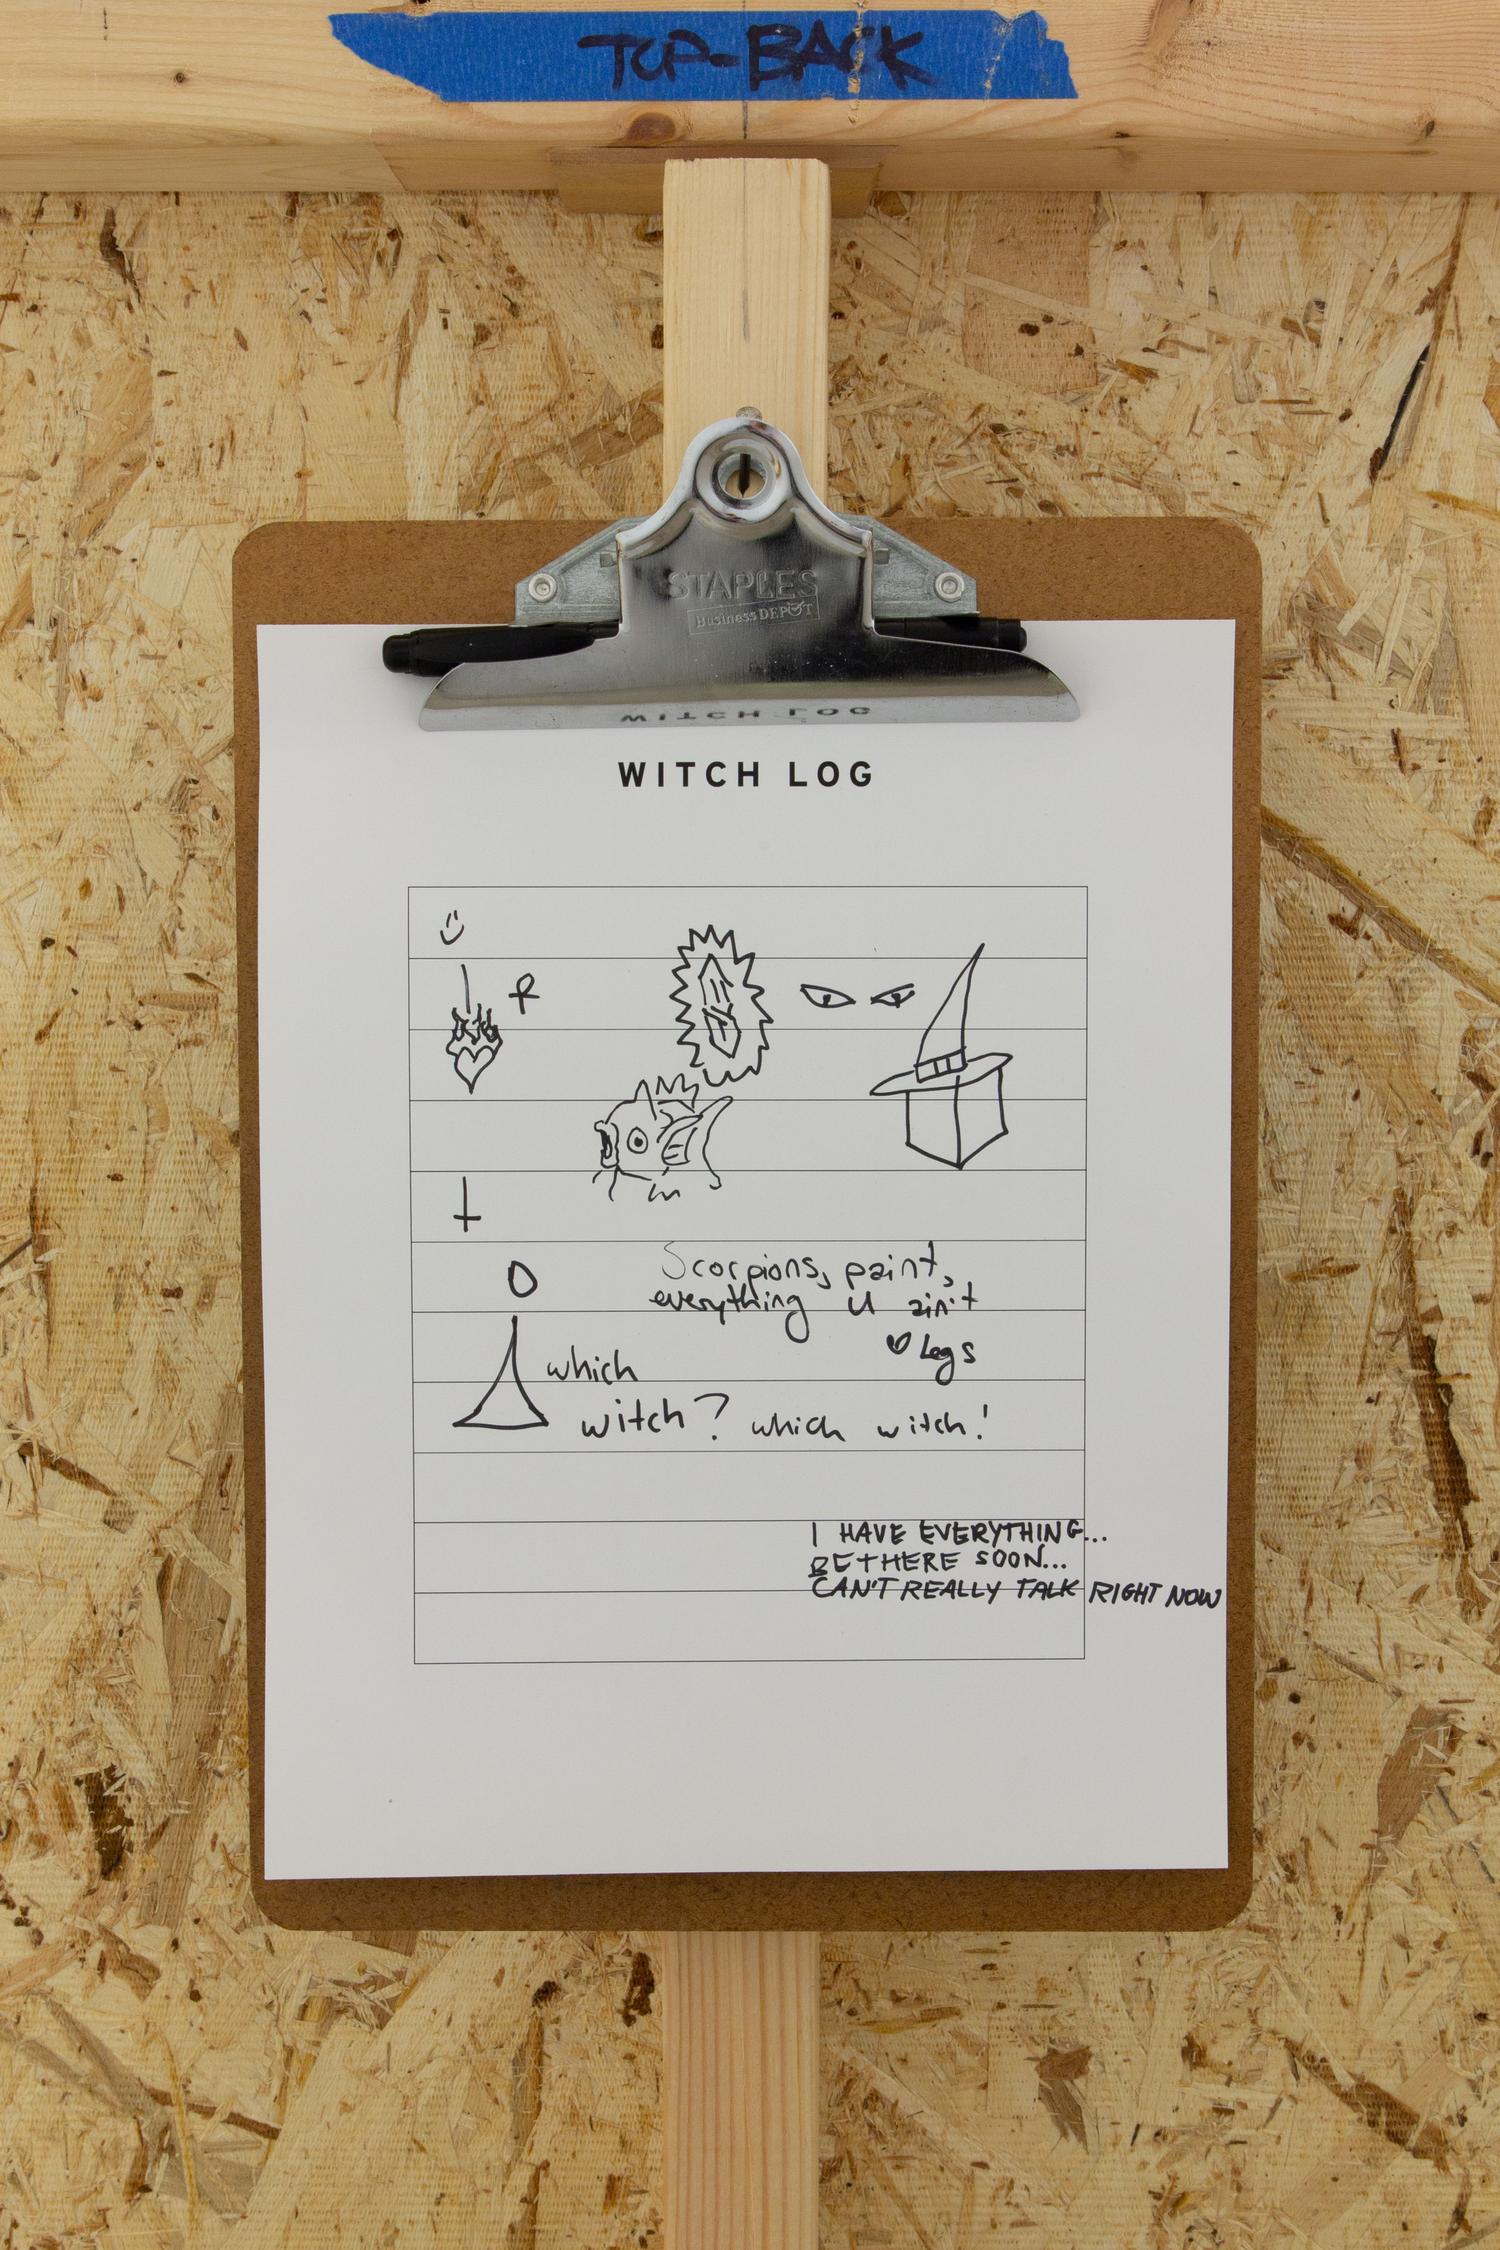 TOP-BACK
STAPLES
Business DEPOT
WITCH LOG
Scorpions, paint,
everything u ain't
♡ Legs
which
witch? which witch!
I HAVE EVERYTHING...
BE THERE SOON...
CAN'T REALLY TALK RIGHT NOW